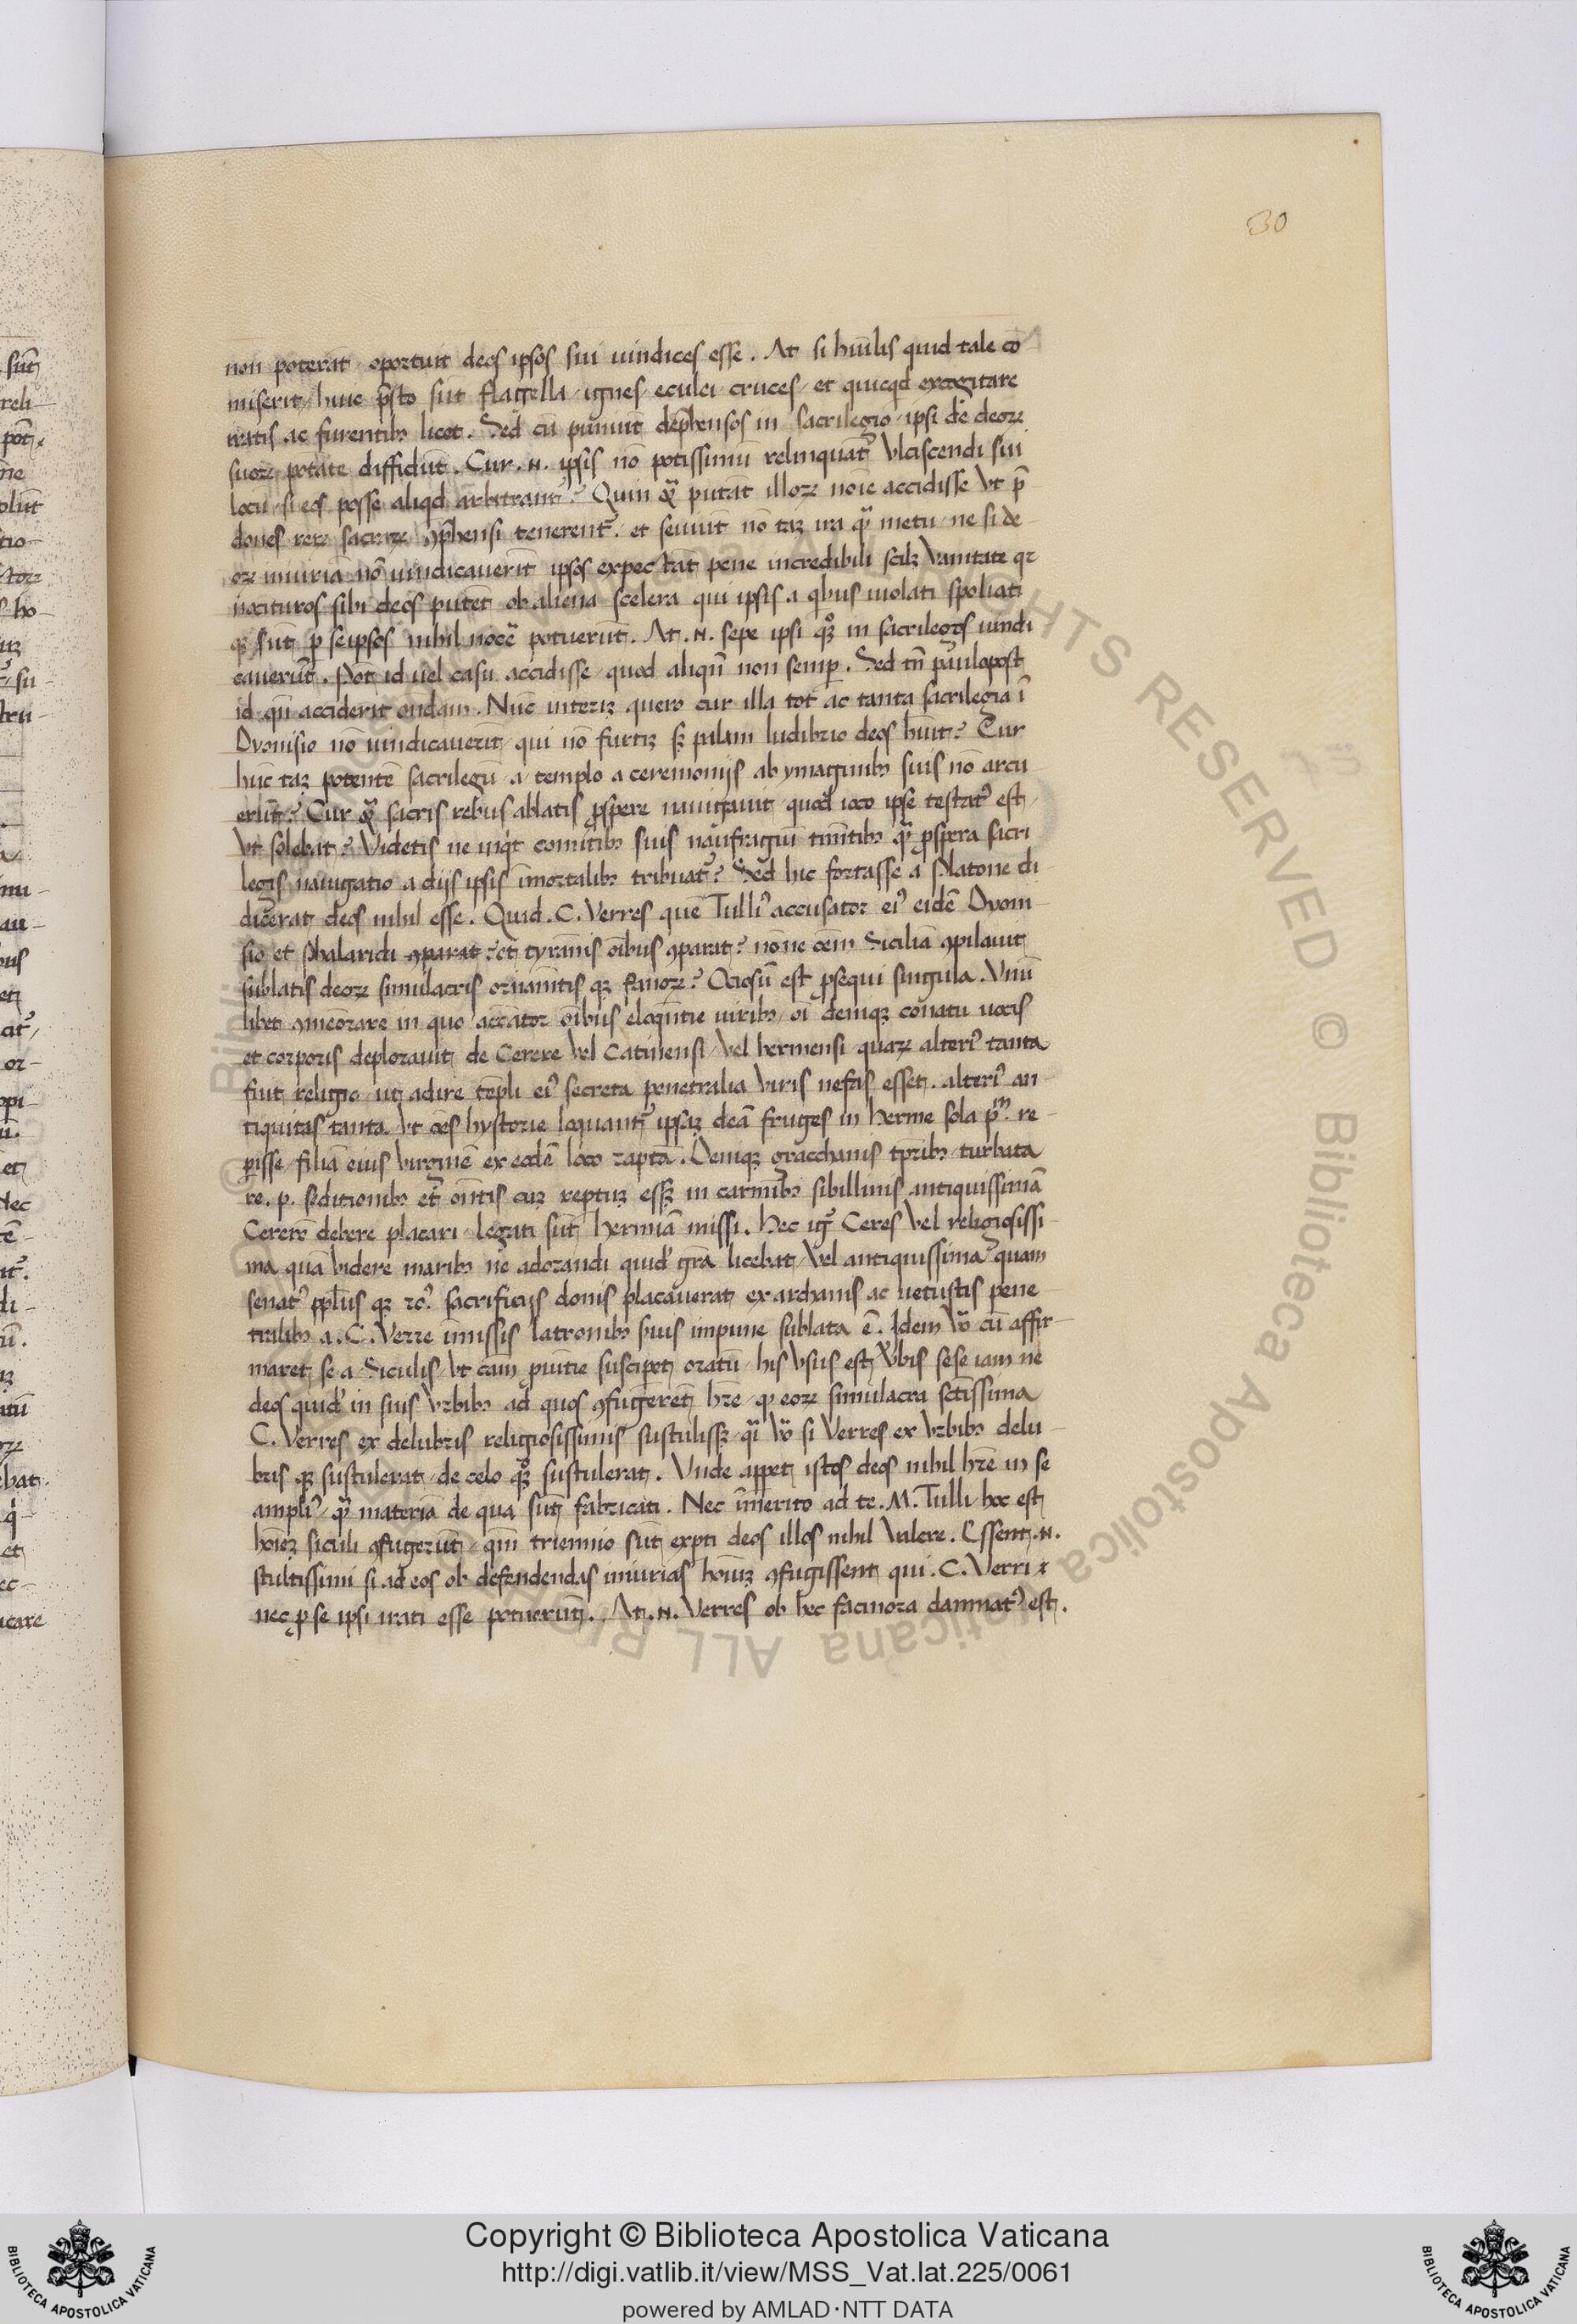 30
non poterāt oportuit deos ipsos sui uindices esse. At si huīlis quid tale cō
miserit huic p̄sto sūt flagella ignes eculei cruces et quicqd exagitare
iratis ac furentibꝫ licet. Sed cū puniūt dep̄hensos in sacrilegio ipsi de deoꝝ
suoꝝ potāte diffidūt. Cur .N. ipsis nō potissimū relinquāt ulciscendi sui
locū si eos posse aliqd arbitrant᷑? Quin putāt illoꝝ noīe accidisse ut p̄
dones sacraꝝ ꝯp̄hensi tenerent᷑. et seuiūt nō taꝫ ira metu ne si de
oꝝ iniuriā nō uindicauerīt ipsos expectāt pene incredibili scilꝫ uanitate
nocituros sibi deos putēt ob aliena scelera qui ipsis a qbus uiolati spoliati
qꝫ sūt p seipsos nihil nocē potuerūt. At .N. sepe ipsi in sacrilegos uindi
cauerūt. Pōt id uel casu accidisse quod aliqn̄ non semp. Sed tn̄ paulopost
id qn̄ acciderit ondam. Nūc interiꝫ quero cur illa tot ac tanta sacrilegia ī
Dyonisio nō uindicauerīt qui nō furtiꝫ sꝫ palam ludibrio deos hūit? Cur
hūc taꝫ potentē sacrilegū a templo a ceremonijs ab ymaginibꝫ suis nō arcu
erūt? Cur sacris rebus ablatis prospere nauigauit quod ioco ipse testat᷑ est
ut solebat? Videtis ne inqt comitibꝫ suis naufragiū timētibꝫ prospera sacri
legis nauigatio a dijs ipsis īmortalibꝫ tribuat᷑? Sed hic fortasse a Platone di
dicerat deos nihil esse. Quid .C. Verres quē Tulli᷒ accusator ei᷒ eidē Dyoni
sio et Phalaridi ꝯparat? et tyrānis oībus ꝯparat? nōne oēm Siciliā ꝯpilauit
sublatis deoꝝ simulacris ornamētis qꝫ fanoꝝ? Ociosū est p̄sequi singula. Vnū
libet ꝯmeōrare in quo accātor oībus eloquētie uiribꝫ oī deniqꝫ conatu uocis
et corporis deplorauit de Cerere uel Catinensi uel hermensi quaꝝ alteri᷒ tanta
fuit religio ut adire tēpli ei᷒ secreta penetralia uiris nefas esset. alteri᷒ an
tiquitas tanta ut oēs hystorie loquant᷑ ipsaꝫ deā fruges in herme sola pm̄. re
perisse filiā eius uirginē ex eodē loco raptā. Deniqꝫ gracchanis tp̄ribꝫ turbata
re. p. seditionibꝫ et oīntis cuꝫ reptuꝫ essꝫ in carmībꝫ sibillinis antiquissimā
Cererē debere placari legati sūt hermiā missi. Hec ig᷑ Ceres uel religiosissi
ma quā uidere maribꝫ ne adorandi quid gr̄a licebat uel antiquissima quam
senat᷒ pp̄lus qꝫ ro᷒. sacrificijs donis placauerat ex archanis ac uetustis pene
tralibꝫ a .C. Verre īmissis latronibꝫ suis impune sublata ē. Idem u̾o cū affir
maret se a Siculis ut cām puintie susciperet oratū his usus est u̾bis sese iam ne
deos quid in suis urbibꝫ ad quos ꝯfugerēt hr̄e eoꝝ simulacra sctissima
C. Verres ex delubris religiosissimis sustulissꝫ qi u̾o si Verres ex urbibꝫ delu
bris qꝫ sustulerat de celo sustulerat. Vnde appet istos deos nihil hr̄e in se
ampli᷒ materiā de qua sūt fabricati. Nec īmerito ad te .M. Tulli hoc est
hoīeꝫ siculi ꝯfugerūt triennio sūt expti deos illos nihil ualere. Essent .N.
stultissimi si ad eos ob defendendas iniurias hoīuꝫ ꝯfugissent qui .C. Verri
nec p se ipsi irati esse potuerūt. At .N. Verres ob hec facinora damnat᷒ est.
Copyright © Biblioteca Apostolica Vaticana
http://digi.vatlib.it/view/MSS_Vat.lat.225/0061
powered by AMLAD·NTT DATA
BIBLIOTECA APOSTOLICA VATICANA
BIBLIOTECA APOSTOLICA VATICANA